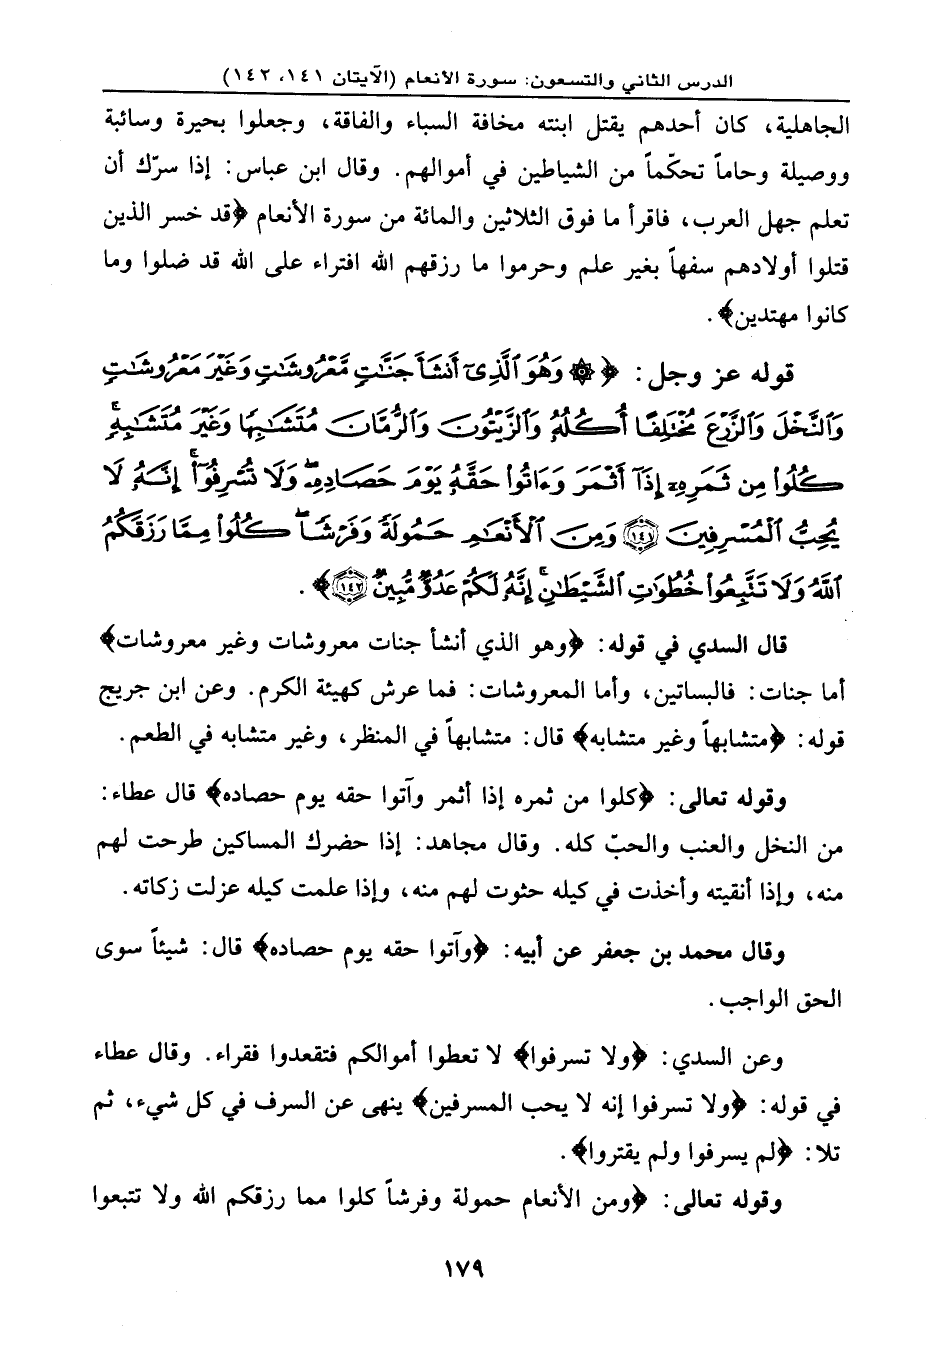 الدرس الثاني والتسعون: سورة الأنعام (الآيتان ١٤١، ١٤٢)
الجاهلية، كان أحدهم يقتل ابنته مخافة السباء والفاقة، وجعلوا بحيرة وسائبة
ووصيلة وحاماً تحكّماً من الشياطين في أموالهم. وقال ابن عباس: إذا سرّك أن
تعلم جهل العرب، فاقرأ ما فوق الثلاثين والمائة من سورة الأنعام ﴿قد خسر الذين
قتلوا أولادهم سفهاً بغير علم وحرموا ما رزقهم الله افتراء على الله قد ضلوا وما
كانوا مهتدين﴾.
قوله عز وجل: ﴿۞ وَهُوَ ٱلَّذِىٓ أَنشَأَ جَنَّٰتٍ مَّعْرُوشَٰتٍ وَغَيْرَ مَعْرُوشَٰتٍ
وَٱلنَّخْلَ وَٱلزَّرْعَ مُخْتَلِفًا أُكُلُهُۥ وَٱلزَّيْتُونَ وَٱلرُّمَّانَ مُتَشَٰبِهًا وَغَيْرَ مُتَشَٰبِهٍۚ
كُلُوا۟ مِن ثَمَرِهِۦٓ إِذَآ أَثْمَرَ وَءَاتُوا۟ حَقَّهُۥ يَوْمَ حَصَادِهِۦۖ وَلَا تُسْرِفُوٓا۟ۚ إِنَّهُۥ لَا
يُحِبُّ ٱلْمُسْرِفِينَ ﴿١٤١﴾ وَمِنَ ٱلْأَنْعَٰمِ حَمُولَةً وَفَرْشًاۚ كُلُوا۟ مِمَّا رَزَقَكُمُ
ٱللَّهُ وَلَا تَتَّبِعُوا۟ خُطُوَٰتِ ٱلشَّيْطَٰنِۚ إِنَّهُۥ لَكُمْ عَدُوٌّ مُّبِينٌ ﴿١٤٢﴾﴾.
قال السدي في قوله: ﴿وهو الذي أنشأ جنات معروشات وغير معروشات﴾
أما جنات: فالبساتين، وأما المعروشات: فما عرش كهيئة الكرم. وعن ابن جريج
قوله: ﴿متشابهاً وغير متشابه﴾ قال: متشابهاً في المنظر، وغير متشابه في الطعم.
وقوله تعالى: ﴿كلوا من ثمره إذا أثمر وآتوا حقه يوم حصاده﴾ قال عطاء:
من النخل والعنب والحبّ كله. وقال مجاهد: إذا حضرك المساكين طرحت لهم
منه، وإذا أنقيته وأخذت في كيله حثوت لهم منه، وإذا علمت كيله عزلت زكاته.
وقال محمد بن جعفر عن أبيه: ﴿وآتوا حقه يوم حصاده﴾ قال: شيئاً سوى
الحق الواجب.
وعن السدي: ﴿ولا تسرفوا﴾ لا تعطوا أموالكم فتقعدوا فقراء. وقال عطاء
في قوله: ﴿ولا تسرفوا إنه لا يحب المسرفين﴾ ينهى عن السرف في كل شيء، ثم
تلا: ﴿لم يسرفوا ولم يقتروا﴾.
وقوله تعالى: ﴿ومن الأنعام حمولة وفرشاً كلوا مما رزقكم الله ولا تتبعوا
١٧٩